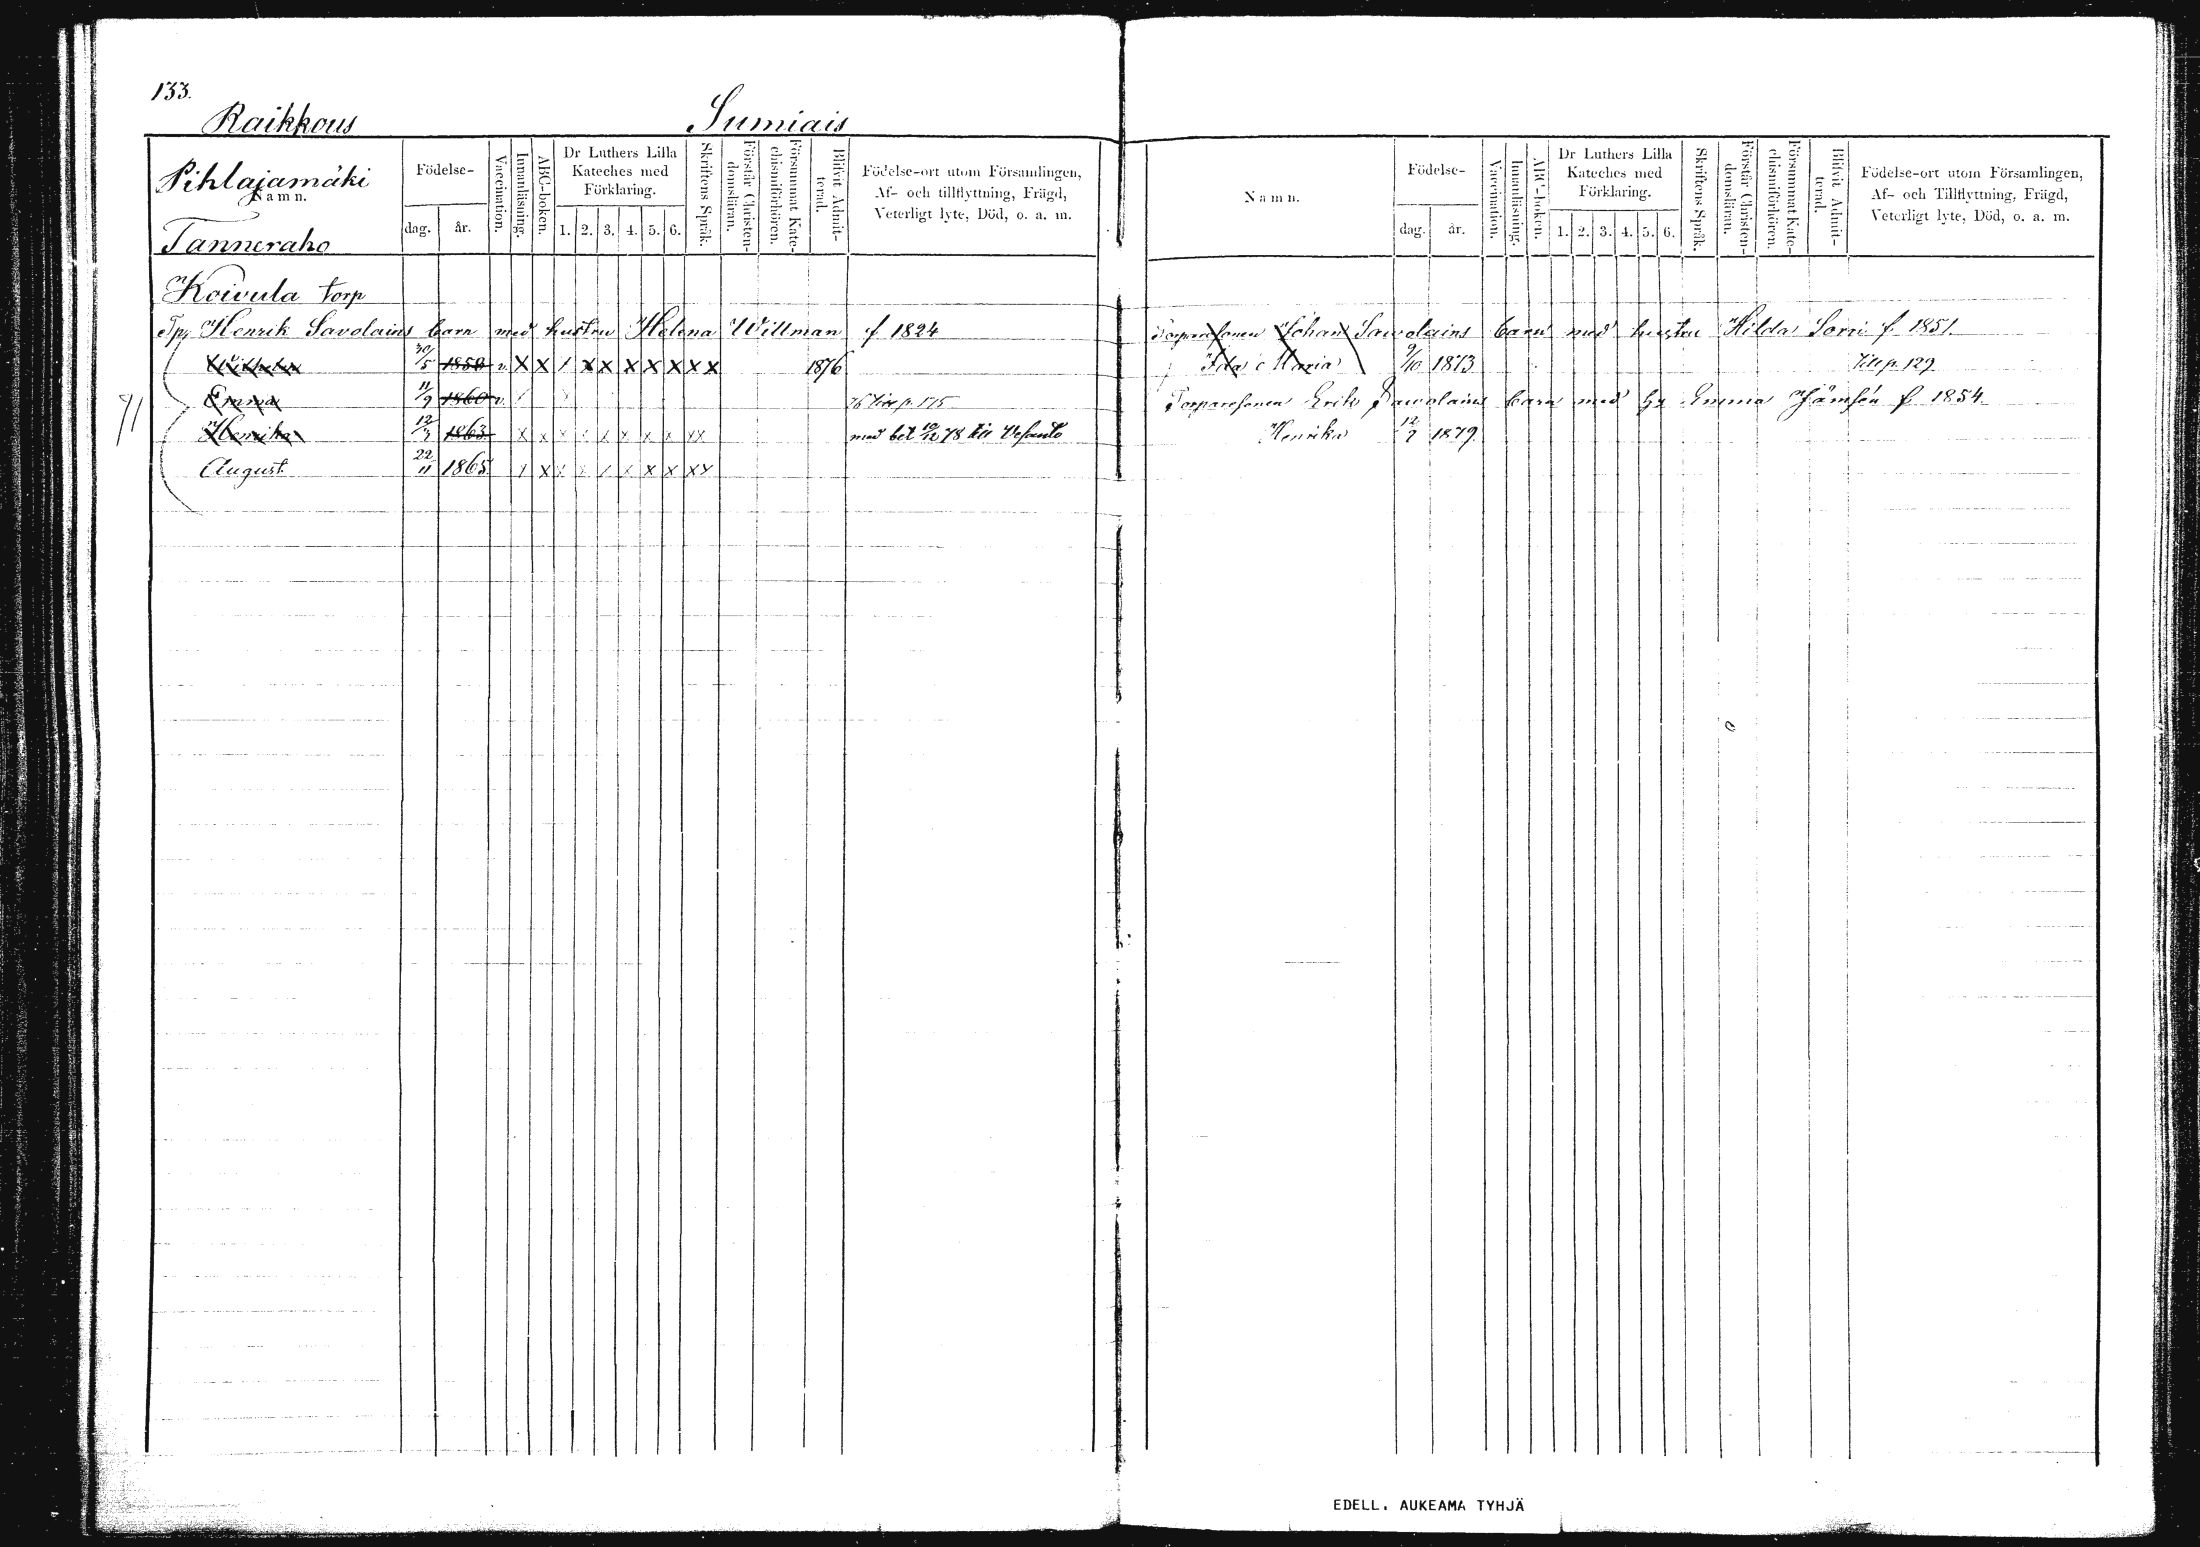 133.
Raikkous Sumiais
Pihlajamäki
Namn.
Tanneraho
Födelse-
dag. år.
Vaccination.
Innanläsning.
ABC-boken.
Dr Luthers Lilla
Kateches med
Förklaring.
1. 2. 3. 4. 5. 6.
Skriftens Språk.
Förstår Christen-
domsläran.
Försummat Kate-
chismiförhören.
Blifvit Admit-
terad.
Födelse-ort utom Församlingen,
Af- och tillflyttning, Frägd,
Veterligt lyte, Död, o. a. m.
Koivula torp
Tp. Henrik Savolains barn med hustru Helena Willman f 1824
30/5 1858 v. X X / X X X X X X X 1876
Emma 11/9 1860 v. 76 till p. 175
Henrika 12/3 1863 x x x x x x x x x x med bet 10/12 78 till Vesanto
August. 22/11 1865 x x x x x x x x x x
71
Namn.
Födelse-
dag. år.
Vaccination.
Innanläsning.
ABC-boken.
Dr Luthers Lilla
Kateches med
Förklaring.
1. 2. 3. 4. 5. 6.
Skriftens Språk.
Förstår Christen-
domsläran.
Försummat Kate-
chismiförhören.
Blifvit Admit-
terad.
Födelse-ort utom Församlingen,
Af- och Tillflyttning, Frägd,
Veterligt lyte, Död, o. a. m.
Torparesonen Johan Sawolains barn med hustru Hilda Sorri f. 1851.
Ida Maria 9/10 1873 till p. 129
Torparesonen Erik Sawolains barn med Emma Jämsén f 1854
Henrika 12/7 1879.
EDELL. AUKEAMA TYHJÄ